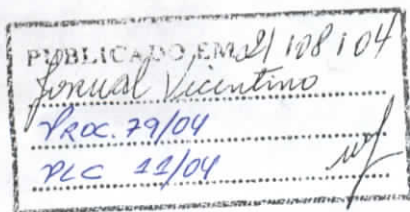 PUBLICADO EM 21/08/04
Jornal Vicentino
PROC. 79/04
PLC 11/04